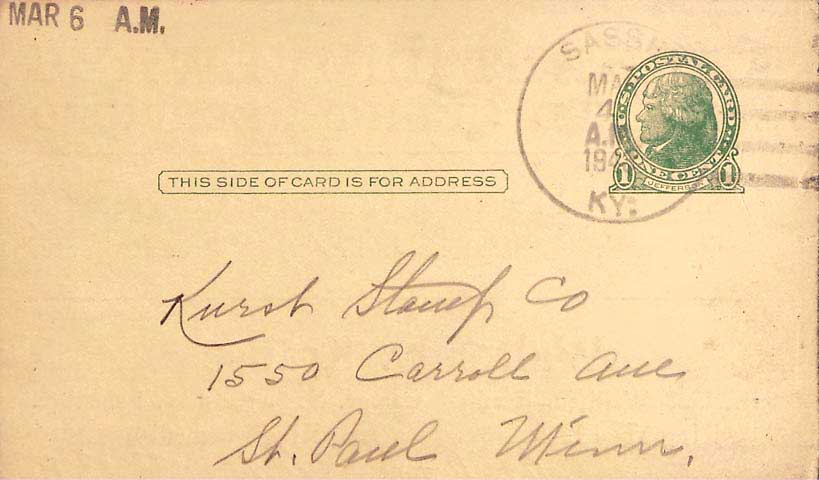 MAR 6 A.M.
U.S. POSTAL CARD
ONE CENT
1 JEFFERSON 1
MAR
4
A.M.
KY.
THIS SIDE OF CARD IS FOR ADDRESS
Kurst Stamp Co
1550 Carroll Ave
St. Paul Minn.